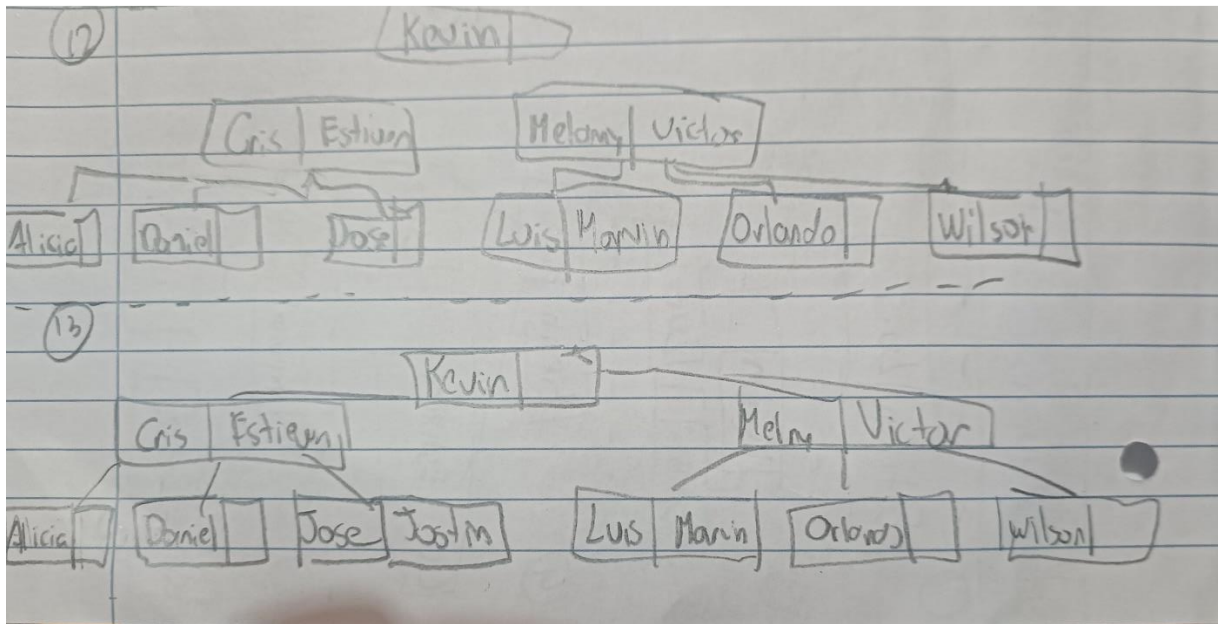 12 Kevin
Cris Estiven Melany Victor
Alicia Daniel Jose Luis Marvin Orlando Wilson
13
Kevin
Cris Estiven Melny Victor
Alicia Daniel Jose Jostin Luis Marvin Orlando Wilson